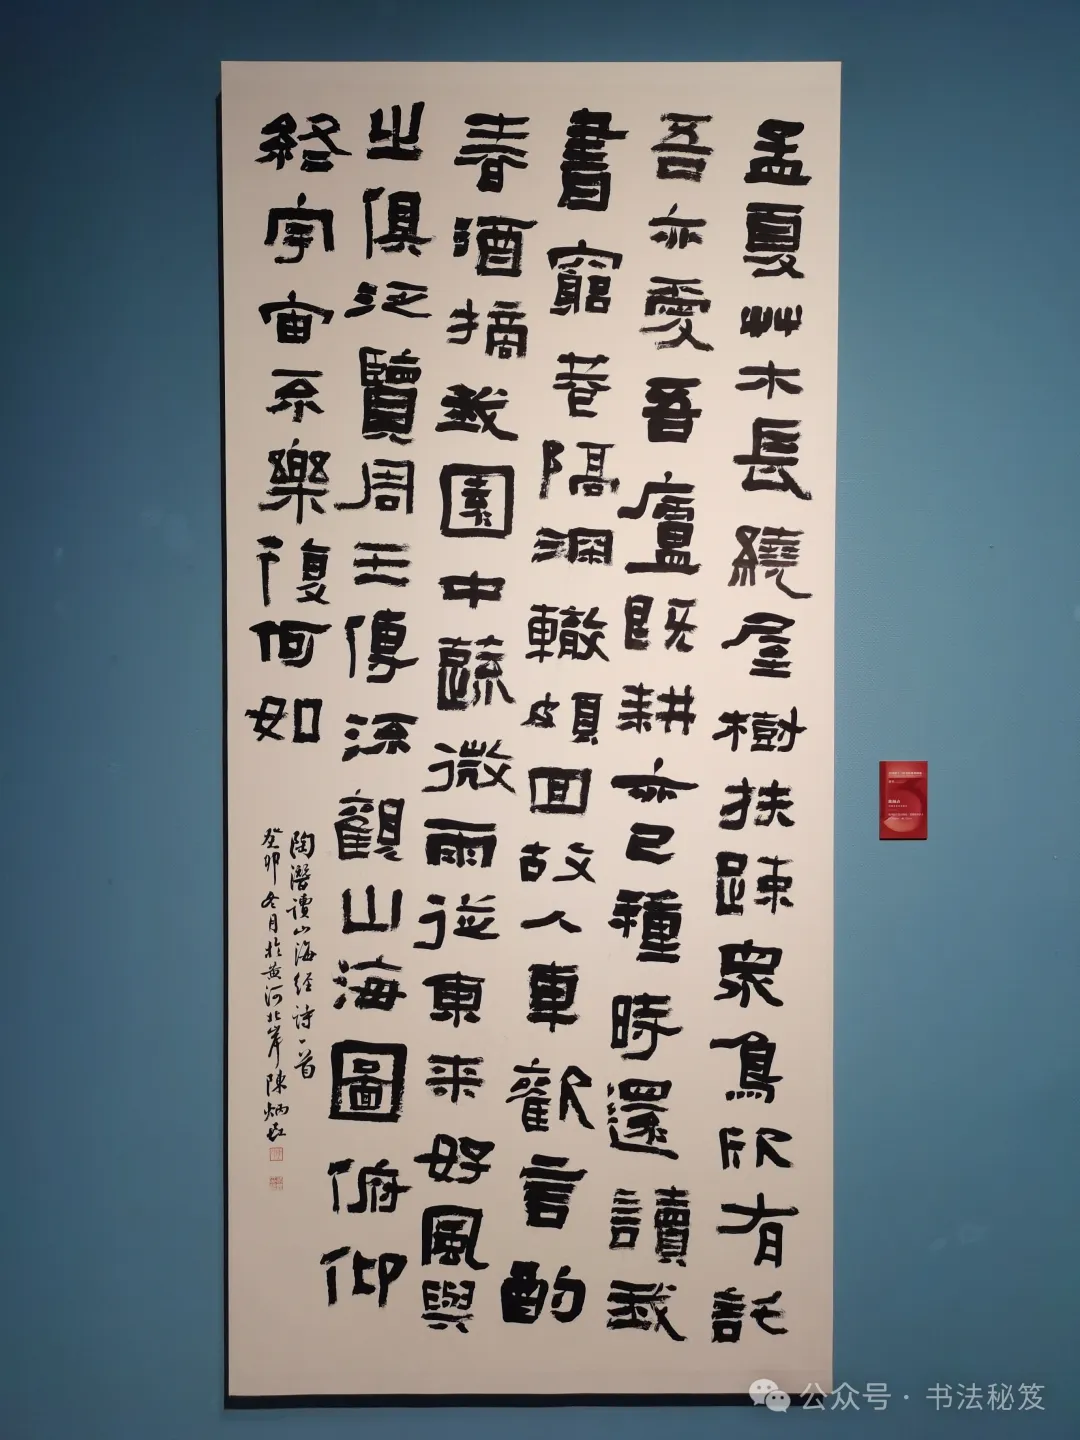 孟夏艸木長繞屋樹扶踈衆鳥欣有託
吾亦愛吾廬既耕亦已種時還讀我
書窮巷隔深轍頗回故人車歡言酌
春酒摘我園中蔬微雨從東来好風與
之俱泛覽周王傳流觀山海圖俯仰
終宇宙不樂復何如
陶潛讀山海经诗一首
癸卯冬月於黄河北岸陳炳
公众号·书法秘笈